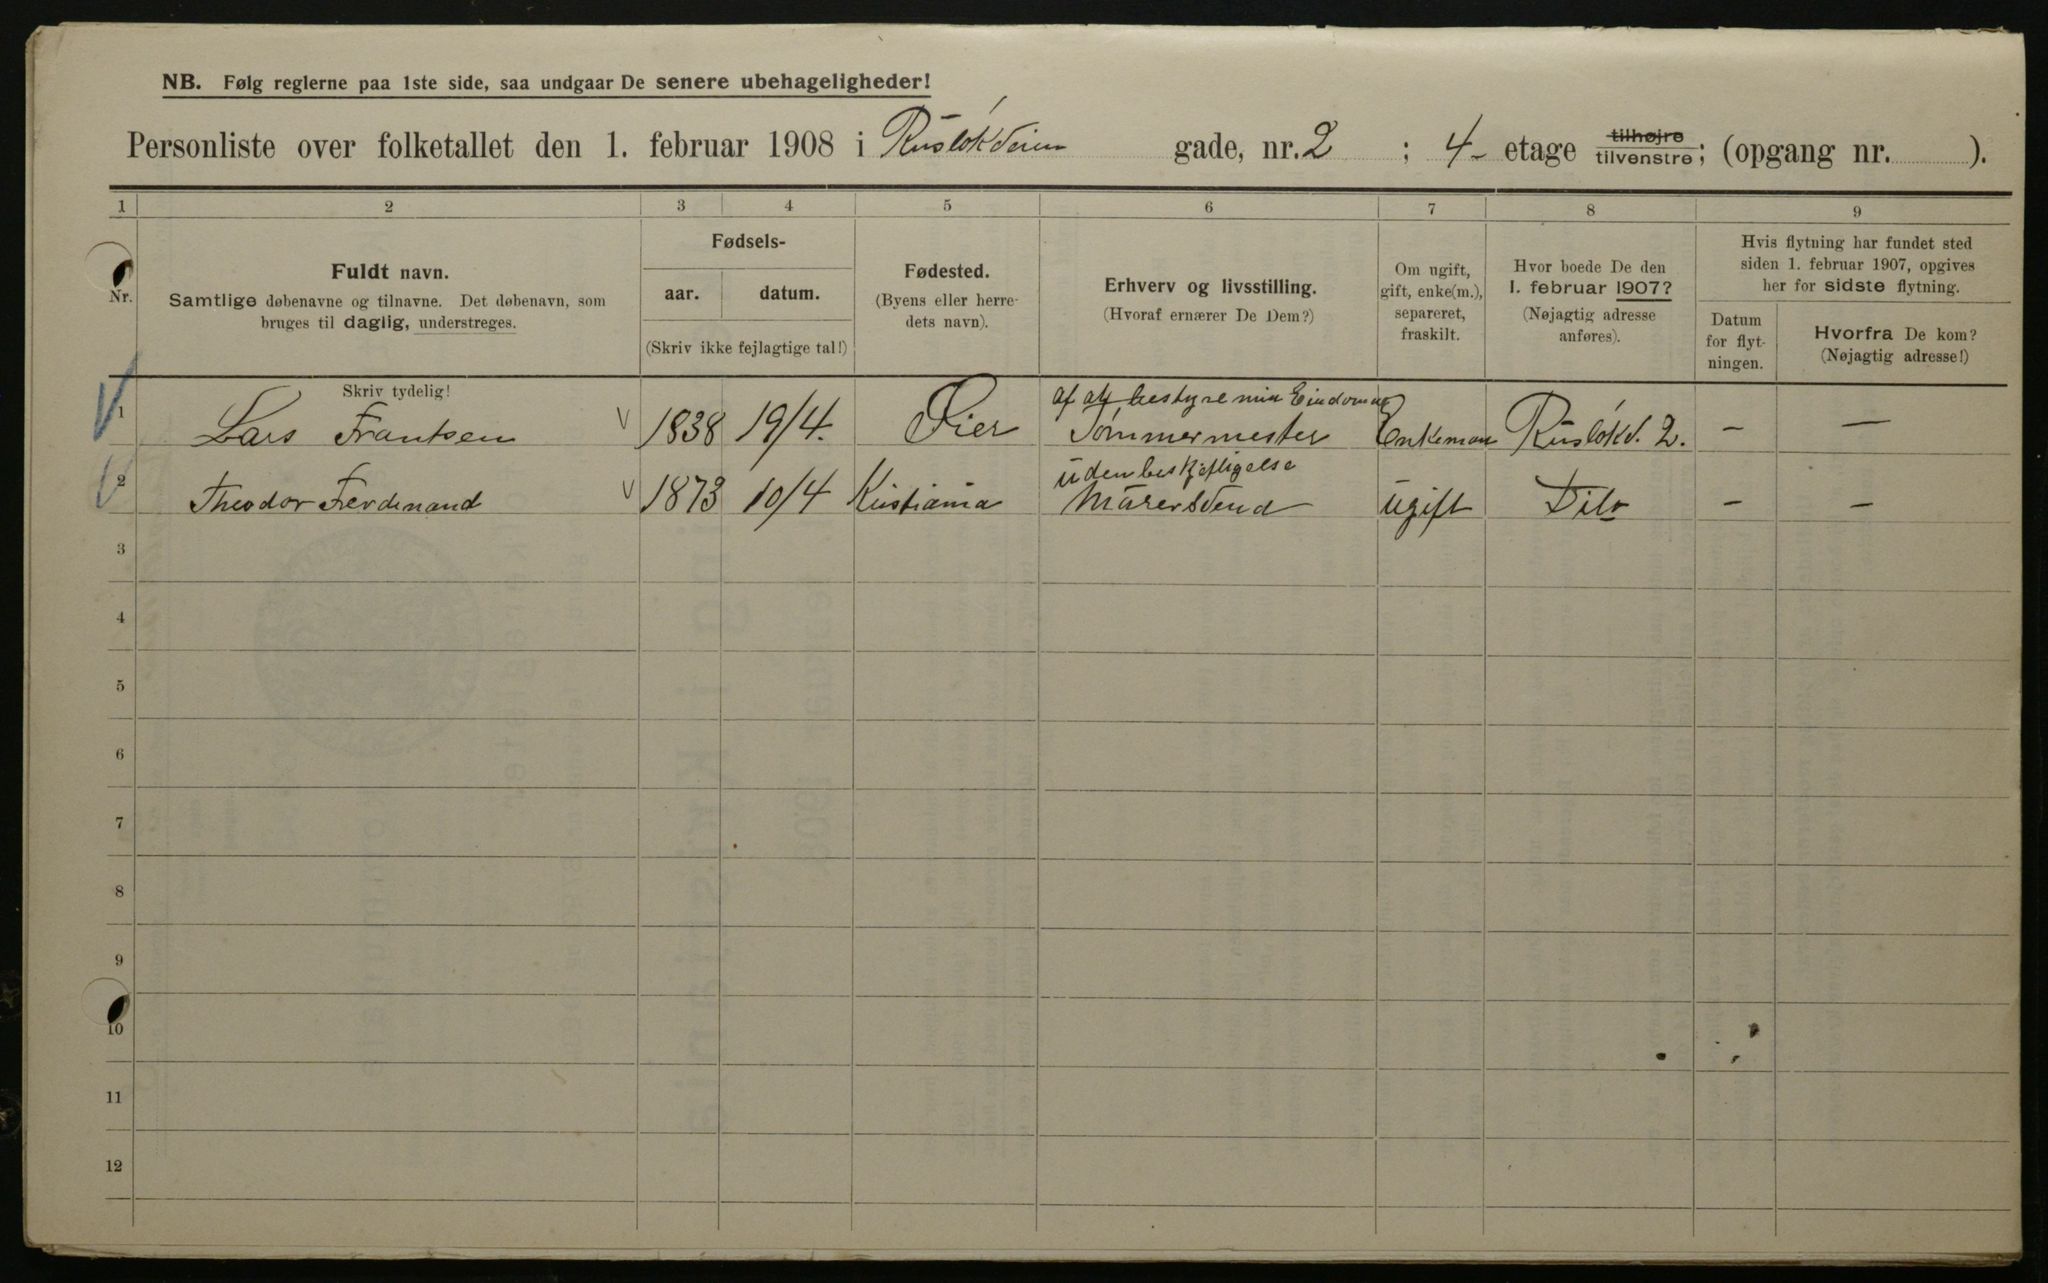 NB. Følg reglerne paa 1ste side, saa undgaar De senere ubehageligheder!
Personliste over folketallet den 1. februar 1908 i Rusløkveien gade, nr. 2 ; 4- etage tilhøjre tilvenstre; (opgang nr. ).
1 2 3 4 5 6 7 8 9
Nr.
Fuldt navn.
Samtlige døbenavne og tilnavne. Det døbenavn, som
bruges til daglig, understreges.
Skriv tydelig!
Fødsels-
aar. datum.
(Skriv ikke fejlagtige tal!)
Fødested.
(Byens eller herre-
dets navn).
Erhverv og livsstilling.
(Hvoraf ernærer De Dem?)
Om ugift,
gift, enke(m.),
separeret,
fraskilt.
Hvor boede De den
1. februar 1907?
(Nøjagtig adresse
anføres).
Hvis flytning har fundet sted
siden 1. februar 1907, opgives
her for sidste flytning.
Datum
for flyt-
ningen.
Hvorfra De kom?
(Nøjagtig adresse!)
af at bestyre min Eiendom
1 Lars Frantsen V 1838 19/4. Øier Tömmermester Enkeman Rusløkv. 2. - -
uden beskjeftigelse
2 Theodor Ferdinand V 1873 10/4 Kristiania Murersvend ugift Dito - -
3
4
5
6
7
8
9
10
11
12